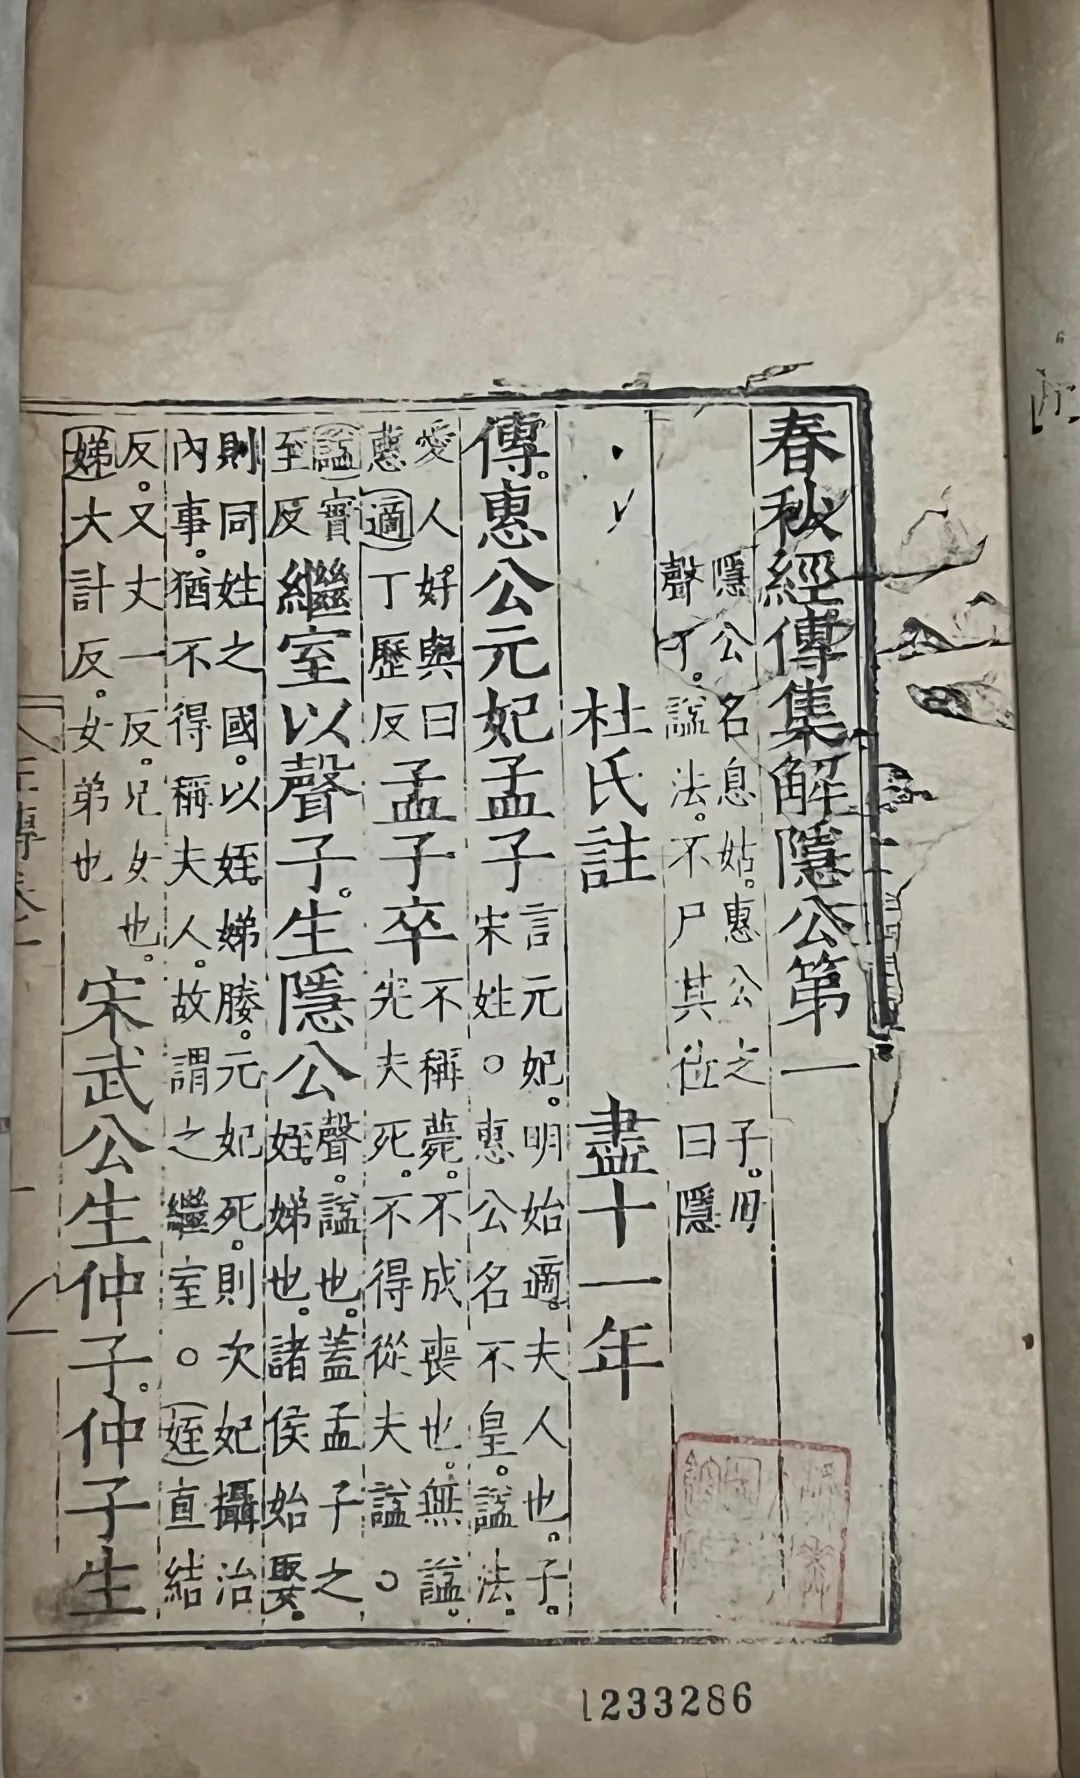 春秋經傳集解隱公第一
隱公名息姑。惠公之子。
聲子。謚法。不尸其位曰隱
杜氏註 盡十一年
傳。惠公元妃孟子
言元妃。明始適。夫人也。子。
宋姓。○惠公名不皇。謚法。
愛人好與曰
惠(適)丁歷反
孟子卒
不稱薨。不成喪也。無謚。
先夫死。不得從夫謚。○
(謚)實
至反
繼室以聲子。生隱公
聲。謚也。蓋孟子之
姪。娣也。諸侯始娶。
則同姓之國。以姪。娣媵。元妃死。則次妃攝治
內事。猶不得稱夫人。故謂之繼室。○(姪)直結
反。又丈一反。兄女也。
(娣)大計反。女弟也
宋武公生仲子。仲子生
1233286